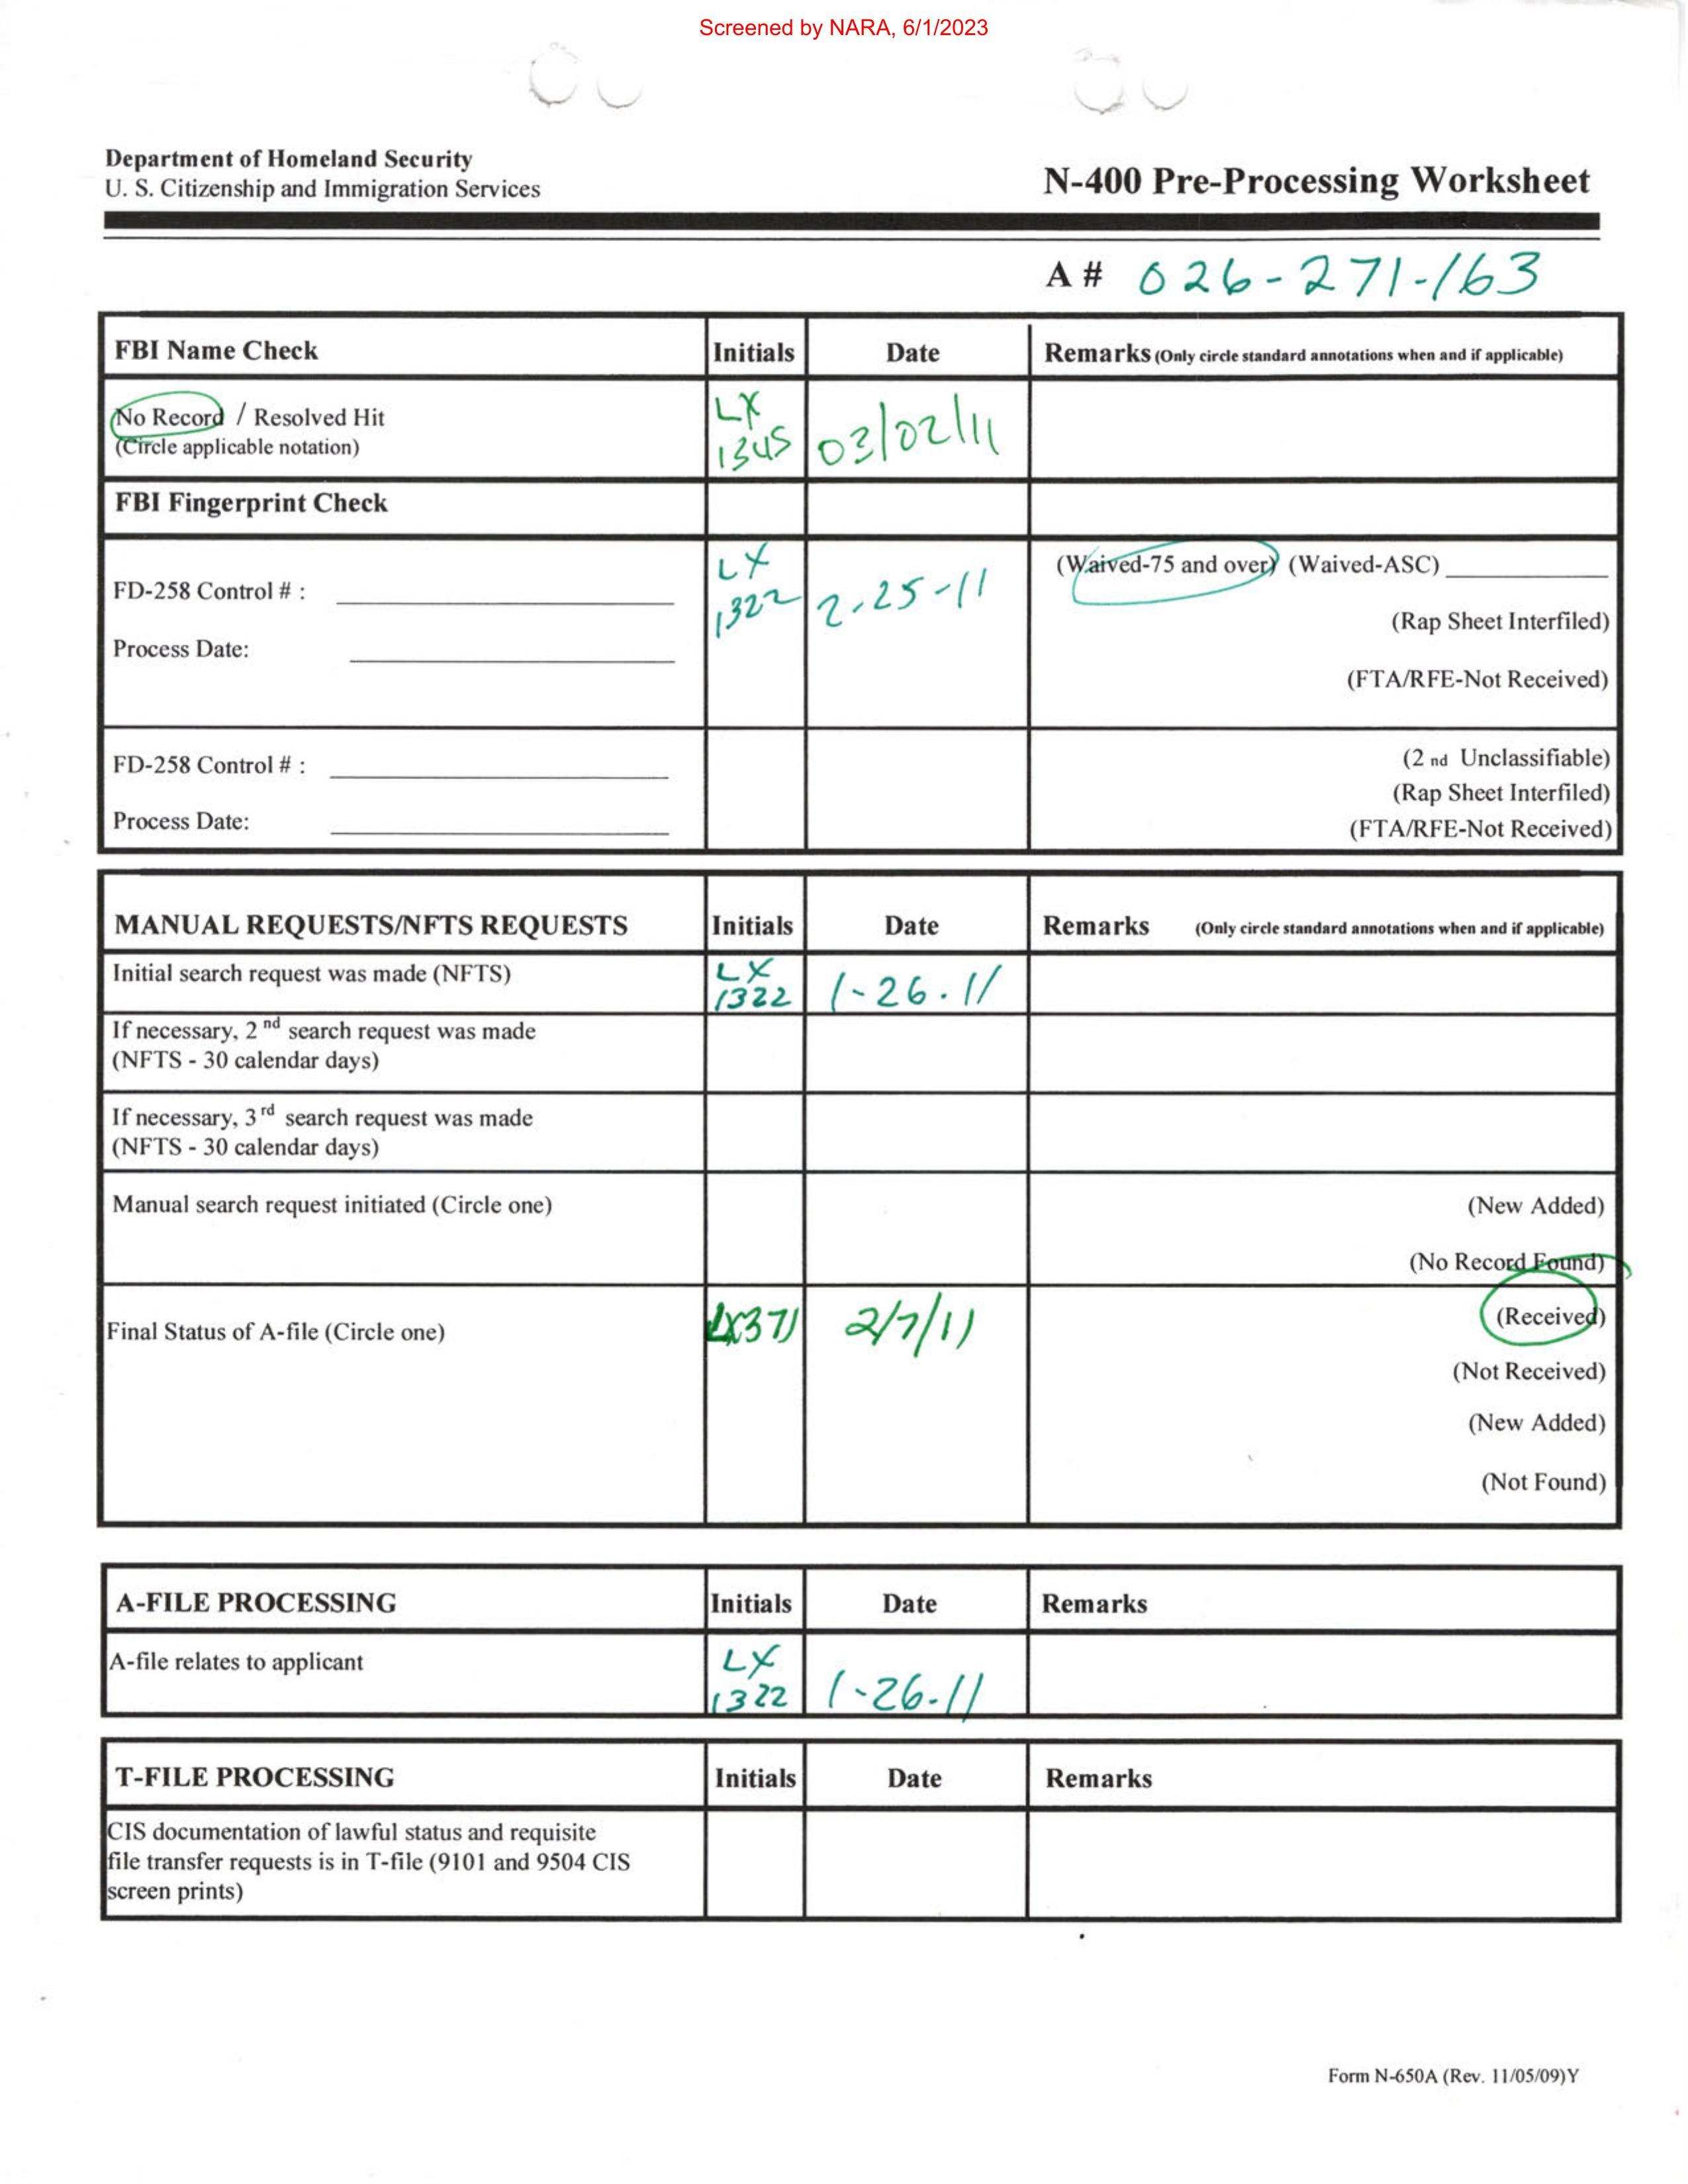 Screened by NARA, 6/1/2023
Department of Homeland Security
U. S. Citizenship and Immigration Services
N-400 Pre-Processing Worksheet
A # 026-271-163
FBI Name Check Initials Date Remarks (Only circle standard annotations when and if applicable)
No Record / Resolved Hit
(Circle applicable notation)
LX
1345
03/02/11
FBI Fingerprint Check
FD-258 Control # :
Process Date:
LX
1322
2-25-11
(Waived-75 and over) (Waived-ASC)
(Rap Sheet Interfiled)
(FTA/RFE-Not Received)
FD-258 Control # :
Process Date:
(2 nd Unclassifiable)
(Rap Sheet Interfiled)
(FTA/RFE-Not Received)
MANUAL REQUESTS/NFTS REQUESTS Initials Date Remarks (Only circle standard annotations when and if applicable)
Initial search request was made (NFTS)
LX
1322
1-26.11
If necessary, 2 nd search request was made
(NFTS - 30 calendar days)
If necessary, 3 rd search request was made
(NFTS - 30 calendar days)
Manual search request initiated (Circle one)
(New Added)
(No Record Found)
Final Status of A-file (Circle one)
LX371
2/7/11
(Received)
(Not Received)
(New Added)
(Not Found)
A-FILE PROCESSING Initials Date Remarks
A-file relates to applicant
LX
1322
1-26-11
T-FILE PROCESSING Initials Date Remarks
CIS documentation of lawful status and requisite
file transfer requests is in T-file (9101 and 9504 CIS
screen prints)
Form N-650A (Rev. 11/05/09)Y